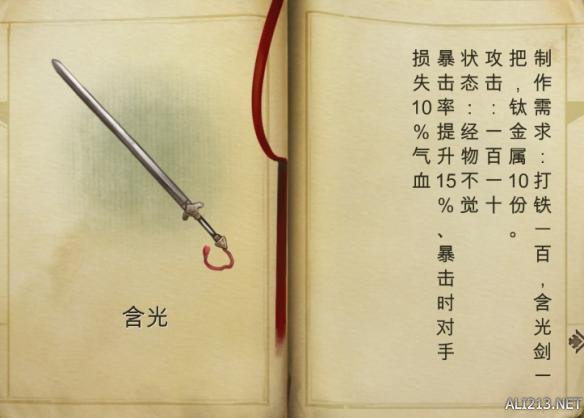 含光
制作需求：打铁一百，含光剑一
把，钛金属10份。
攻击：一百一十
状态：经物不觉
暴击率提升15%、暴击时对手
损失10%气血
ALI213.NET